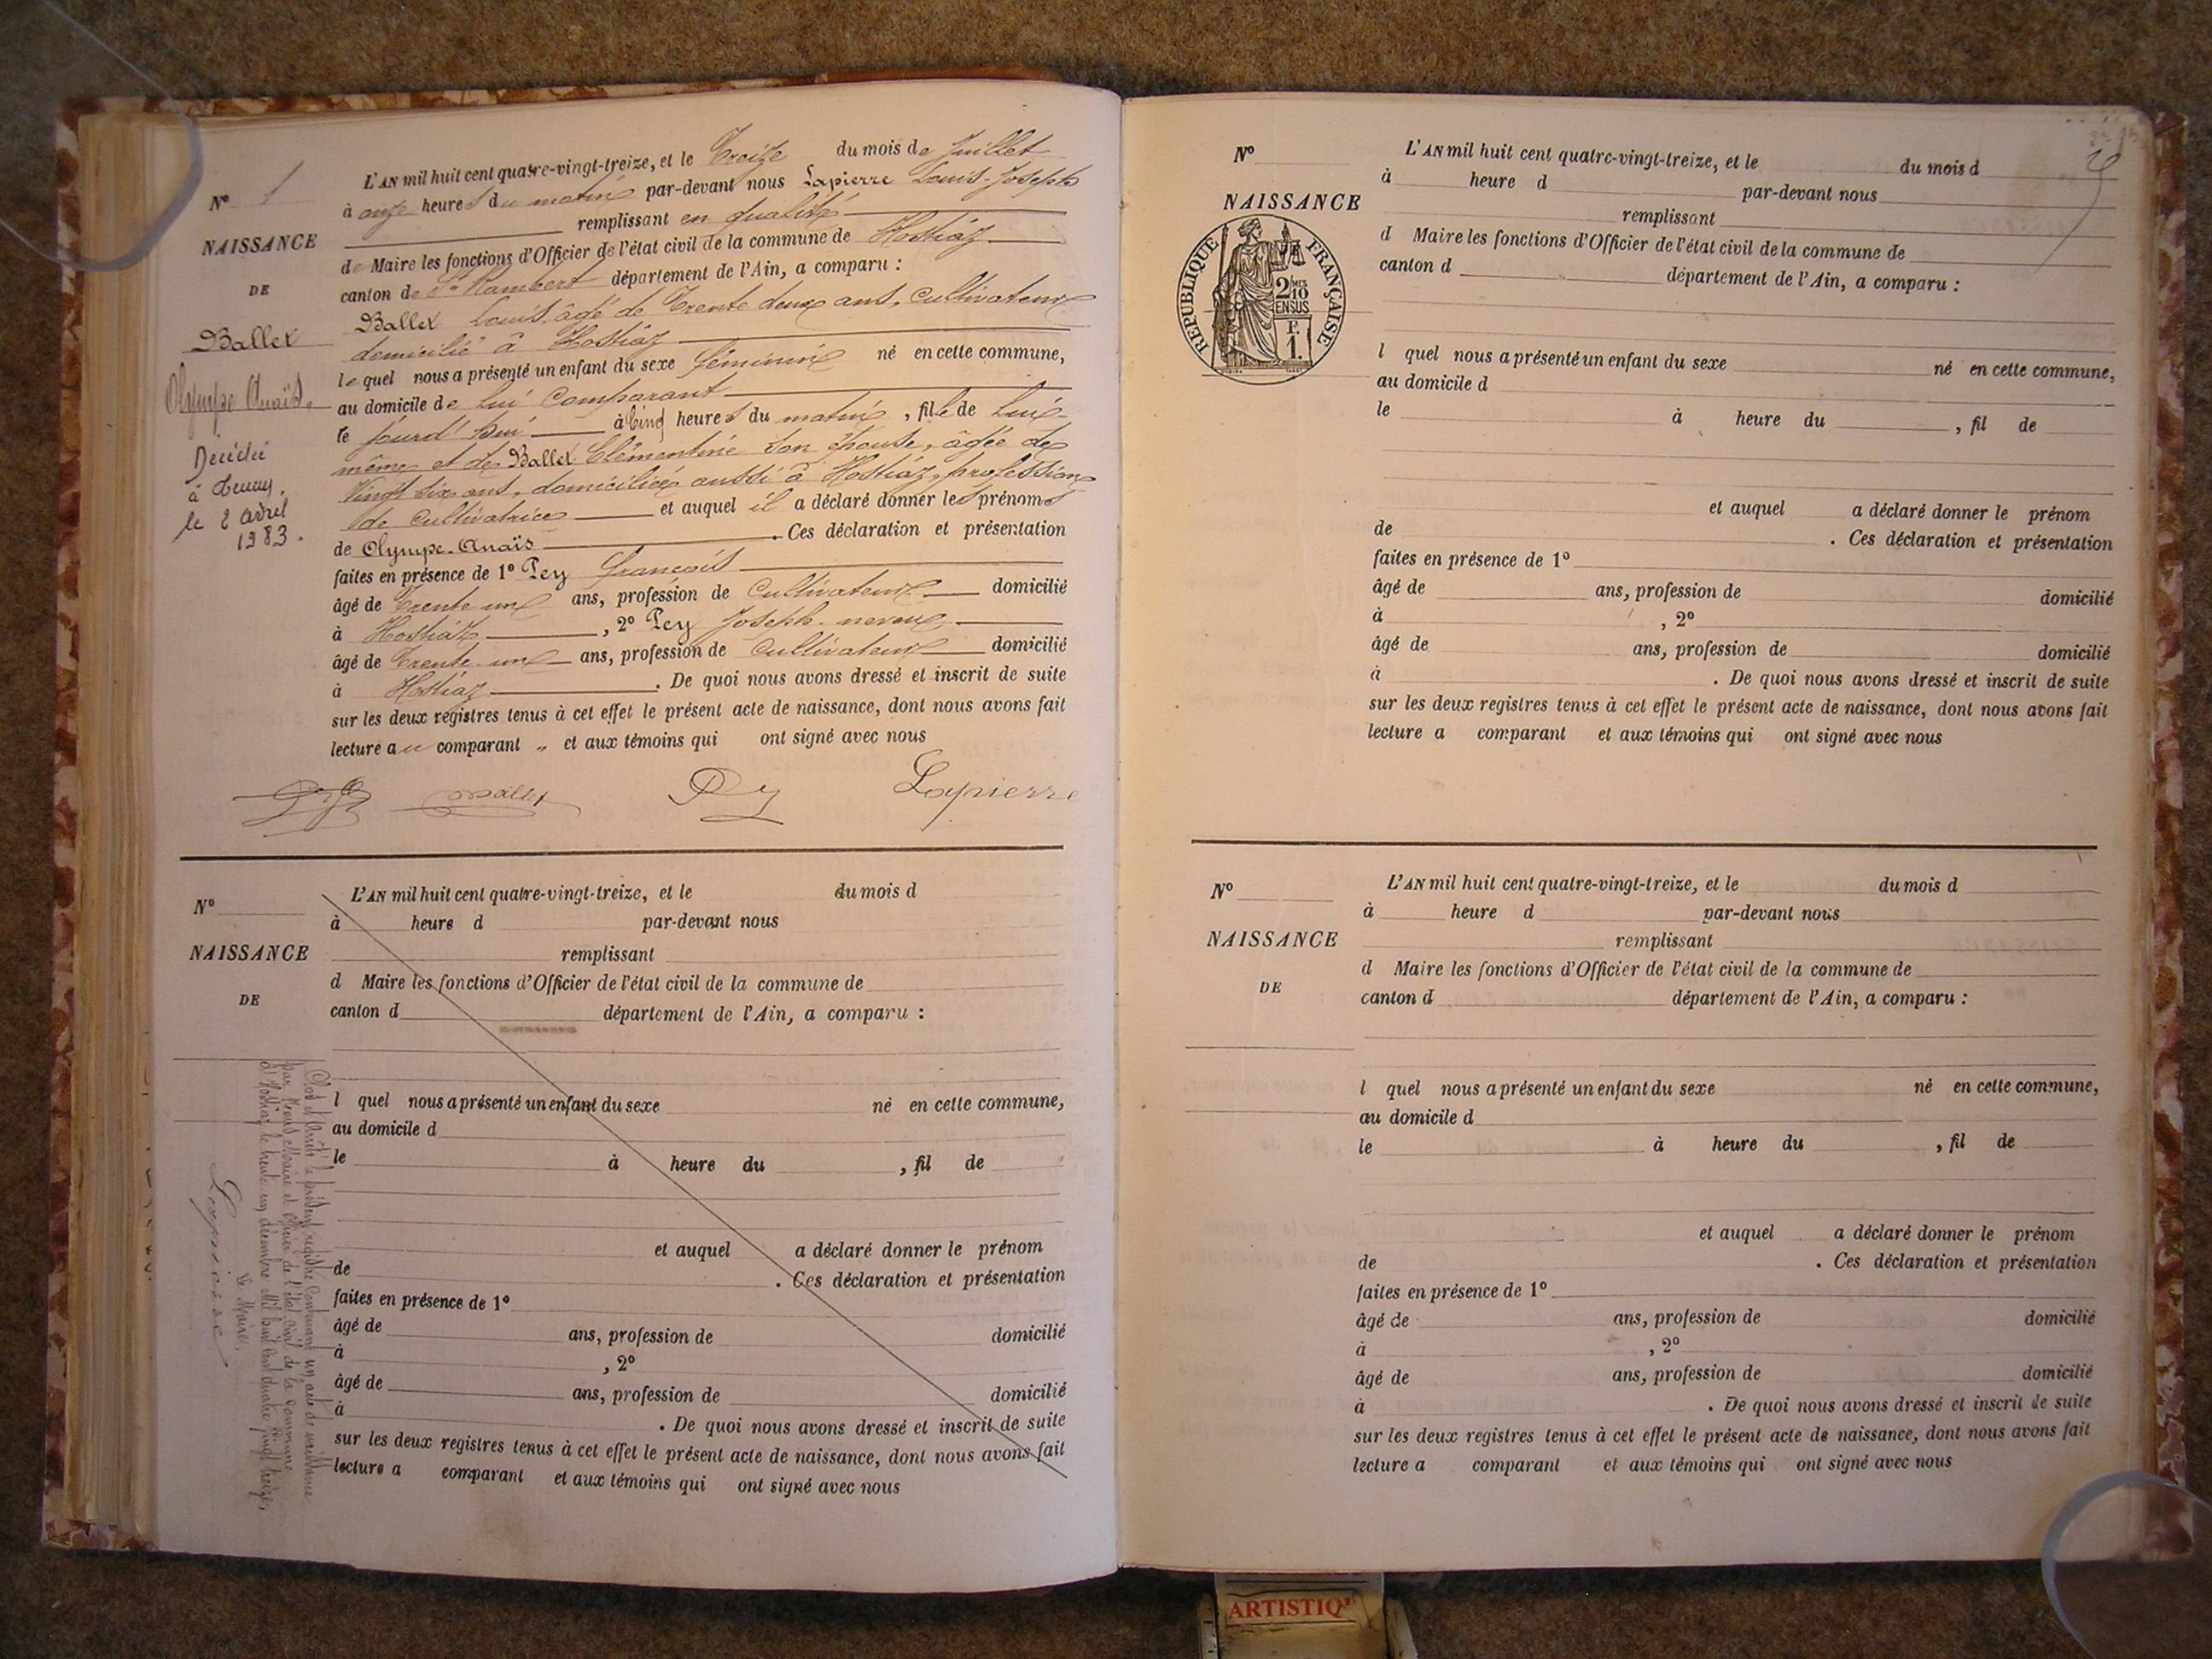 N° 1
NAISSANCE
DE
Ballet
Olympe Anaïs.
Décédée
à Tenay,
le 2 Avril
1983.
L'AN mil huit cent quatre-vingt-treize, et le Treize du mois de Juillet
à onze heures du matin par-devant nous Lapierre Louis-Joseph
remplissant en qualité
de Maire les fonctions d'Officier de l'état civil de la commune de Hostiaz
canton de St Rambert département de l'Ain, a comparu :
Ballet Louis, âgé de Trente deux ans, cultivateur
domicilié à Hostiaz
lequel nous a présenté un enfant du sexe féminin né en cette commune,
au domicile de lui comparant
le jourd'hui à Cinq heures du matin, fille de lui-
même et de Ballet Clémentine son épouse, âgée de
Vingt six ans, domiciliée aussi à Hostiaz, profession
de Cultivatrice et auquel il a déclaré donner les prénoms
de Olympe-Anaïs. Ces déclaration et présentation
faites en présence de 1° Pey François
âgé de Trente un ans, profession de Cultivateur domicilié
à Hostiaz, 2° Pey Joseph neveu,
âgé de Trente un ans, profession de Cultivateur domicilié
à Hostiaz. De quoi nous avons dressé et inscrit de suite
sur les deux registres tenus à cet effet le présent acte de naissance, dont nous avons fait
lecture au comparant „ et aux témoins qui ont signé avec nous
Ballet Pey Lapierre
N°
NAISSANCE
DE
L'AN mil huit cent quatre-vingt-treize, et le du mois d
à heure d par-devant nous
remplissant
d Maire les fonctions d'Officier de l'état civil de la commune de
canton d département de l'Ain, a comparu :
l quel nous a présenté un enfant du sexe né en cette commune,
au domicile d
le à heure du , fil de
et auquel a déclaré donner le prénom
de . Ces déclaration et présentation
faites en présence de 1°
âgé de ans, profession de domicilié
à , 2°
âgé de ans, profession de domicilié
à . De quoi nous avons dressé et inscrit de suite
sur les deux registres tenus à cet effet le présent acte de naissance, dont nous avons fait
lecture a comparant et aux témoins qui ont signé avec nous
Clos et Arrêté le présent registre Contenant un acte de naissance
par Nous Maire et officier de l'état civil de la commune
d'Hostiaz le trente un décembre Mil huit Cent quatre vingt treize,
Le Maire,
Lapierre
N°
NAISSANCE
REPUBLIQUE FRANÇAISE
2/10MES
EN SUS
1F.
L'AN mil huit cent quatre-vingt-treize, et le du mois d
à heure d par-devant nous
remplissant
d Maire les fonctions d'Officier de l'état civil de la commune de
canton d département de l'Ain, a comparu :
l quel nous a présenté un enfant du sexe né en cette commune,
au domicile d
le à heure du , fil de
et auquel a déclaré donner le prénom
de . Ces déclaration et présentation
faites en présence de 1°
âgé de ans, profession de domicilié
à , 2°
âgé de ans, profession de domicilié
à . De quoi nous avons dressé et inscrit de suite
sur les deux registres tenus à cet effet le présent acte de naissance, dont nous avons fait
lecture a comparant et aux témoins qui ont signé avec nous
N°
NAISSANCE
DE
L'AN mil huit cent quatre-vingt-treize, et le du mois d
à heure d par-devant nous
remplissant
d Maire les fonctions d'Officier de l'état civil de la commune de
canton d département de l'Ain, a comparu :
l quel nous a présenté un enfant du sexe né en cette commune,
au domicile d
le à heure du , fil de
et auquel a déclaré donner le prénom
de . Ces déclaration et présentation
faites en présence de 1°
âgé de ans, profession de domicilié
à , 2°
âgé de ans, profession de domicilié
à . De quoi nous avons dressé et inscrit de suite
sur les deux registres tenus à cet effet le présent acte de naissance, dont nous avons fait
lecture a comparant et aux témoins qui ont signé avec nous
ARTISTIQ